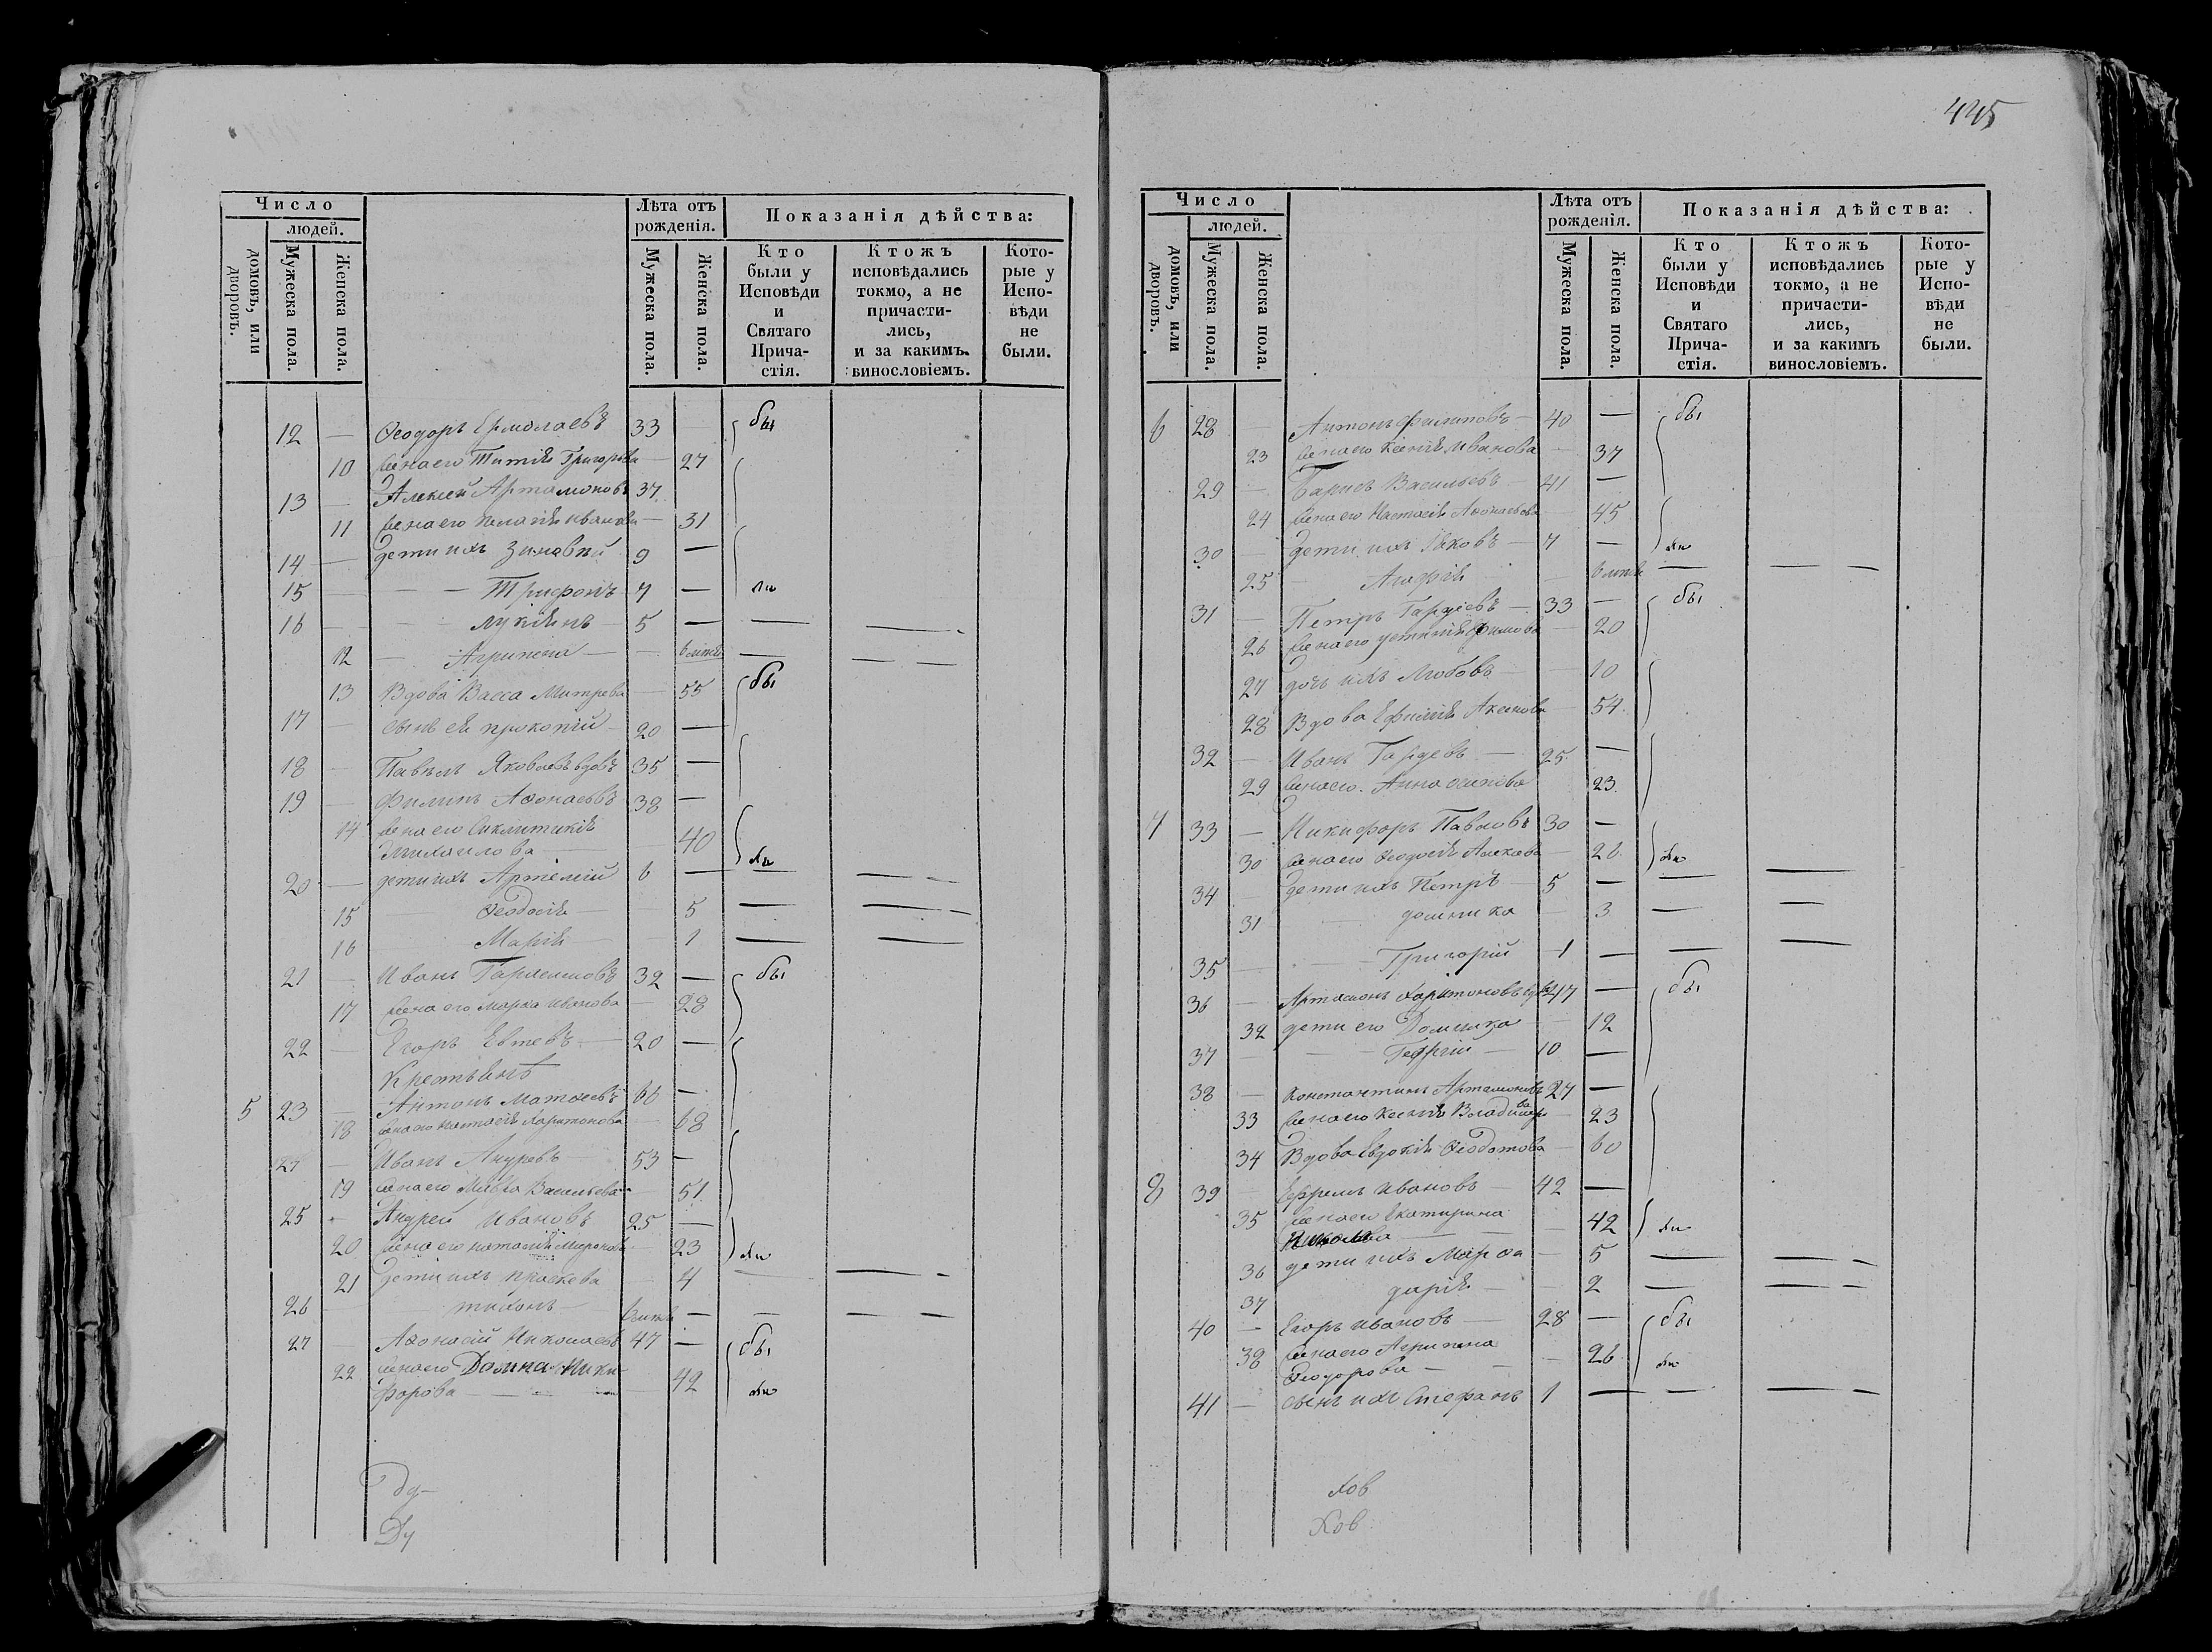 445
Число
людей.
домовъ, или дворовъ.
Мужеска пола.
Женска пола.
Лѣта отъ рожденія.
Мужеска пола.
Женска пола.
Показанія дѣйства:
Кто были у Исповѣди и Святаго Прича-стія.
Ктожъ исповѣдались токмо, а не причасти-лись, и за какимъ винословіемъ.
Кото-рые у Испо-вѣди не были.
12 — Ѳеодоръ Ермолаевъ 33 бы
10 жена его Григорьева — 27
13 — Алексей Артамоновъ 37
11 жена его Пелагія Иванова — 31
14 — дети ихъ Зиновий 9 —
15 — Трифонъ 7 — ли
16 — Лукіянъ 5 — — —
12 — Агрипена — 6 — —
13 Вдова Васса Митрева — 55 бы
17 — сынъ ея Прокопій 20 —
18 — Павелъ Яковлевъ вдовъ 35 —
19 — Филипъ Аѳонасьевъ 38 —
14 жена его Синклитикія
Михаилова — 40 ли
20 — дети ихъ Артемий 6 — — —
15 Ѳеодосія — 5 — —
16 Марія — 1 — —
21 — Иванъ 32 — бы
17 жена его Марѳа Иванова — 28
22 — Егоръ Евтеевъ 20 —
Крестьянѣ
5 23 — Антонъ Матѳеевъ 66 —
18 жена его Настасія Харитонова 68
24 — Иванъ 53 —
19 жена его Васильева — 51
25 — Андрей Ивановъ 25 —
20 жена его Миронова 23 ли
21 Дети ихъ Праскева — 4 — —
26 — Тихонъ — — — —
27 — Аѳонасій Николаевъ 47 — бы
22 жена его Домна Ники
форова — — — 42 ли
Ду-
Ду
Число
людей.
домовъ, или дворовъ.
Мужеска пола.
Женска пола.
Лѣта отъ рожденія.
Мужеска пола.
Женска пола.
Показанія дѣйства:
Кто были у Исповѣди и Святаго Прича-стія.
Ктожъ исповѣдались токмо, а не причасти-лись, и за какимъ винословіемъ.
Кото-рые у Испо-вѣди не были.
6 28 — Антонъ Филиповъ — 40 — бы
23 жена его Ксенія Иванова — 37
29 — Барисъ Васильевъ — 41 —
24 жена его Настасія — 45
30 — Дети ихъ Яковъ — 7 — ли
25 — Агафія — 6 — — —
31 — Петръ Гардіевъ — 33 — бы
26 жена его Устинія — 20
27 дочь ихъ Любовь — 10
28 Вдова Ефимія — 54
32 — Иванъ Гардевъ — 25 —
29 жена его Анна 23
7 33 — Никифоръ Павловъ 30 —
30 жена его Ѳеодосія 26 ли
34 дети ихъ Петръ 5 — — —
31 — домника — 3 — —
35 — Григорій 1 — — —
36 — Артамонъ Харитоновъ вдовъ 47 — бы
32 дети его Домника — 12
37 — Георгій — 10 —
38 — Константинъ Артамоновъ 27 —
33 жена его Ксенія Владимерова — 23
34 Вдова Евдокія Ѳеодотова — 60
8 39 Ефремъ Ивановъ — 42 —
35 жена его Екатирина
— 42 ли
36 дети ихъ Марѳа — 5 — —
37 дарія — 2 — —
40 — Егоръ Ивановъ — 28 — бы
38 жена его Агрипена
Ѳеодорова — — 26 ли
41 — сынъ ихъ Стефанъ 1 — — —
Хов
Хов